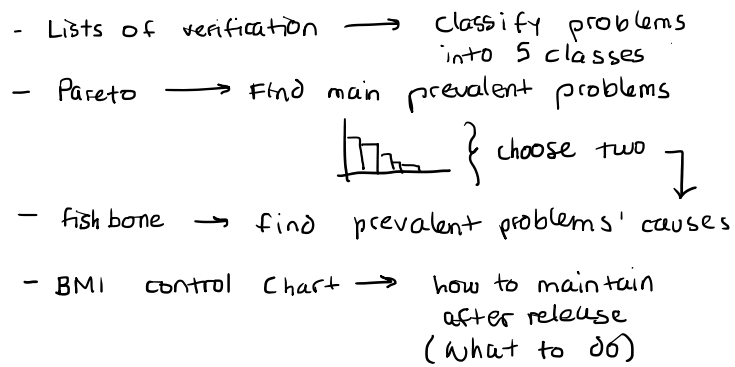 - Lists of verification → classify problems
into 5 classes
- Pareto → Find main prevalent problems
} choose two
- fishbone → find prevalent problems' causes
- BMI control chart → how to maintain
after release
(what to do)